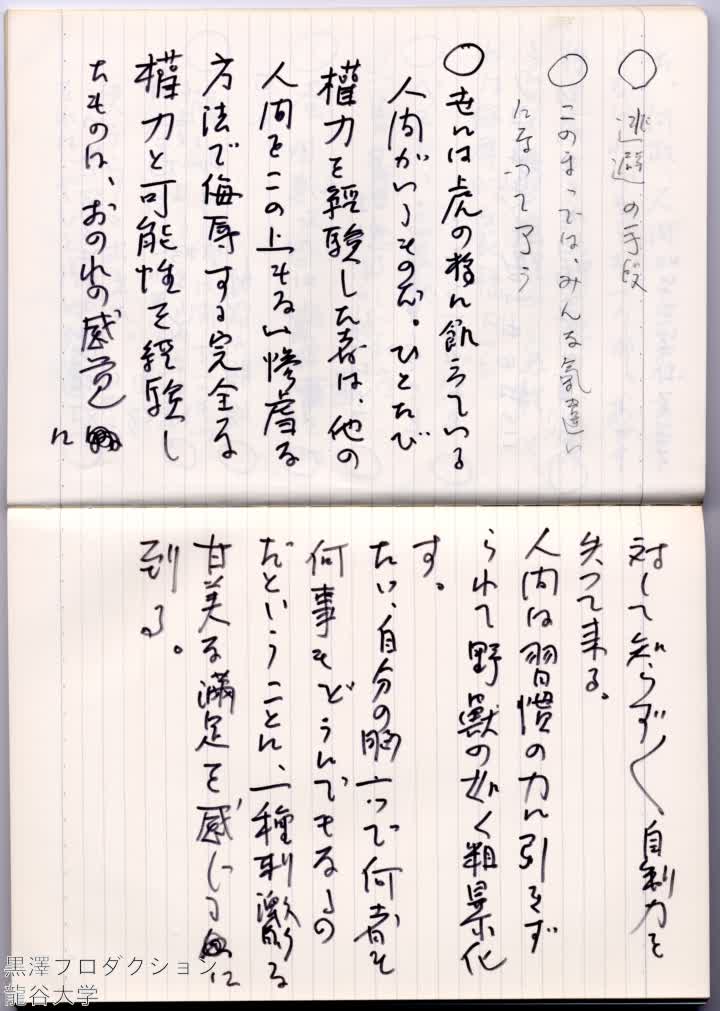 ○ 逃避の手段
○ このまゝでは、みんな気違ひ
になって了う
○ 世には虎の様に飢えている
人間がいるものだ。ひとたび
權力を経験した者は、他の
人間をこの上もない惨虐な
方法で侮辱する完全な
權力と可能性を経験し
たものは、おのれの感覚
に
対して知らず〳〵自制力を
失って来る。
人間は習慣の力に引きず
られて野獸の如く粗暴化
す。
たい、自分の胸一つで何者も
何事もどうにでもなるの
だということに、一種刺激な
甘美な満足を感じるに
到る。
黒澤プロダクション
龍谷大学